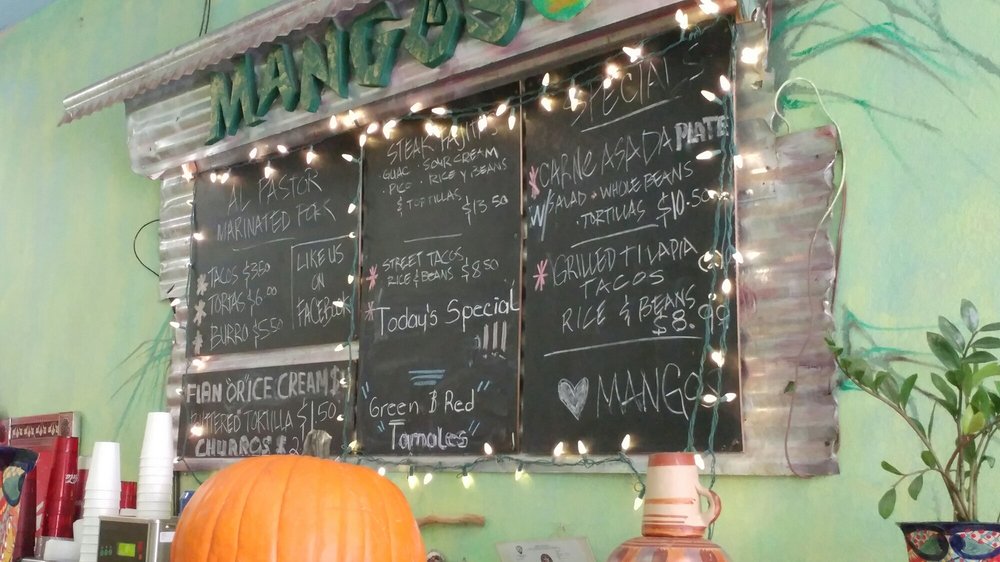 MANGOS
AL PASTOR
MARINATED PORK
* TACOS $3.50
* TORTAS $6.00
* BURRO $5.50
LIKE US
ON
FACEBOOK
FLAN "OR" ICE CREAM $
BUTTERED TORTILLA $1.50
CHURROS $2
STEAK FAJITAS
· GUAC · SOUR CREAM
· PICO · RICE Y BEANS
& TORTILLAS $13.50
* STREET TACOS
RICE & BEANS $8.50
* Today's Special
!!!
"Green & Red"
"Tamales"
SPECIALS
* CARNE ASADA PLATE
W/ SALAD + WHOLE BEANS
· TORTILLAS $10.50
* GRILLED TILAPIA
TACOS
RICE & BEANS
$8.00
MANGOS